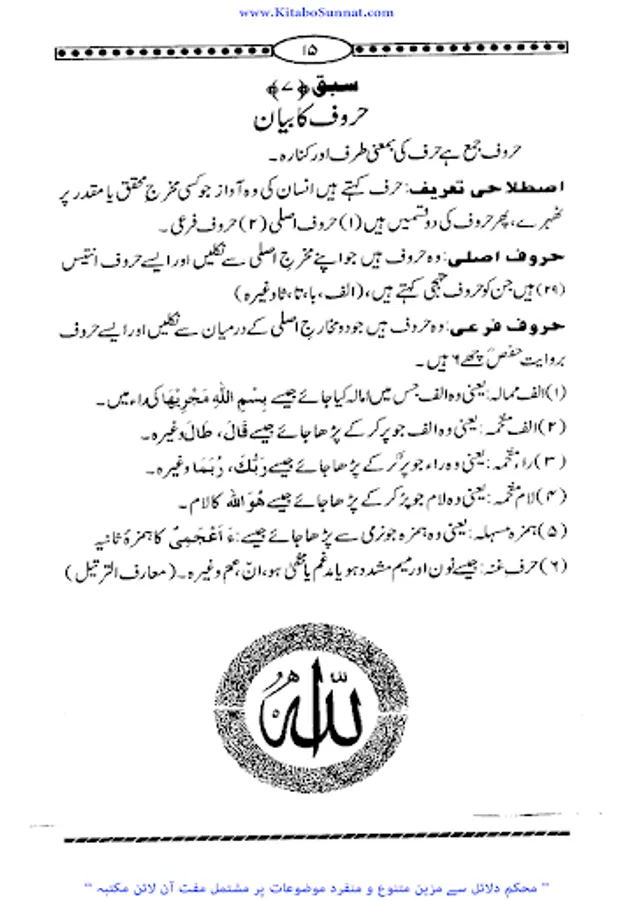 www.KitaboSunnat.com
۱۵
سبق ﴿۷﴾
حروف کا بیان
حروف جمع ہے حرف کی بمعنی طرف اور کنارہ۔
اصطلاحی تعریف: حرف کہتے ہیں انسان کی وہ آواز جو کسی مخرج محقق یا مقدر پر
ٹھہرے، پھر حروف کی دو قسمیں ہیں (۱) حروف اصلی (۲) حروف فرعی۔
حروف اصلی: وہ حروف ہیں جو اپنے مخرج اصلی سے نکلیں اور ایسے حروف انتیس
(۲۹) ہیں جن کو حروف تہجی کہتے ہیں، (الف، با، تا، ثا وغیرہ)
حروف فرعی: وہ حروف ہیں جو دو مخارج اصلی کے درمیان سے نکلیں اور ایسے حروف
بروایت حفصؒ چھے ۶ ہیں۔
(۱) الف ممالہ: یعنی وہ الف جس میں امالہ کیا جائے جیسے بِسْمِ اللهِ مَجْرِیْهَا کی راء میں۔
(۲) الف مفخمہ: یعنی وہ الف جو پر کر کے پڑھا جائے جیسے قَالَ، طَالَ وغیرہ۔
(۳) راء مفخمہ: یعنی وہ راء جو پُر کر کے پڑھا جائے جیسے رَبُّكَ، رُبَمَا وغیرہ۔
(۴) لام مفخمہ: یعنی وہ لام جو پُر کر کے پڑھا جائے جیسے هُوَ اللهُ کا لام۔
(۵) ہمزہ مسہلہ: یعنی وہ ہمزہ جو نرمی سے پڑھا جائے جیسے: ءَ اَعْجَمِیٌّ کا ہمزۂ ثانیہ
(۶) حرف غنہ: جیسے نون اور میم مشدد ہو یا مدغم یا مخفیٰ ہو، انّ، عم وغیرہ۔ (معارف الترتیل)
الله
" محکم دلائل سے مزین متنوع و منفرد موضوعات پر مشتمل مفت آن لائن مکتبہ "